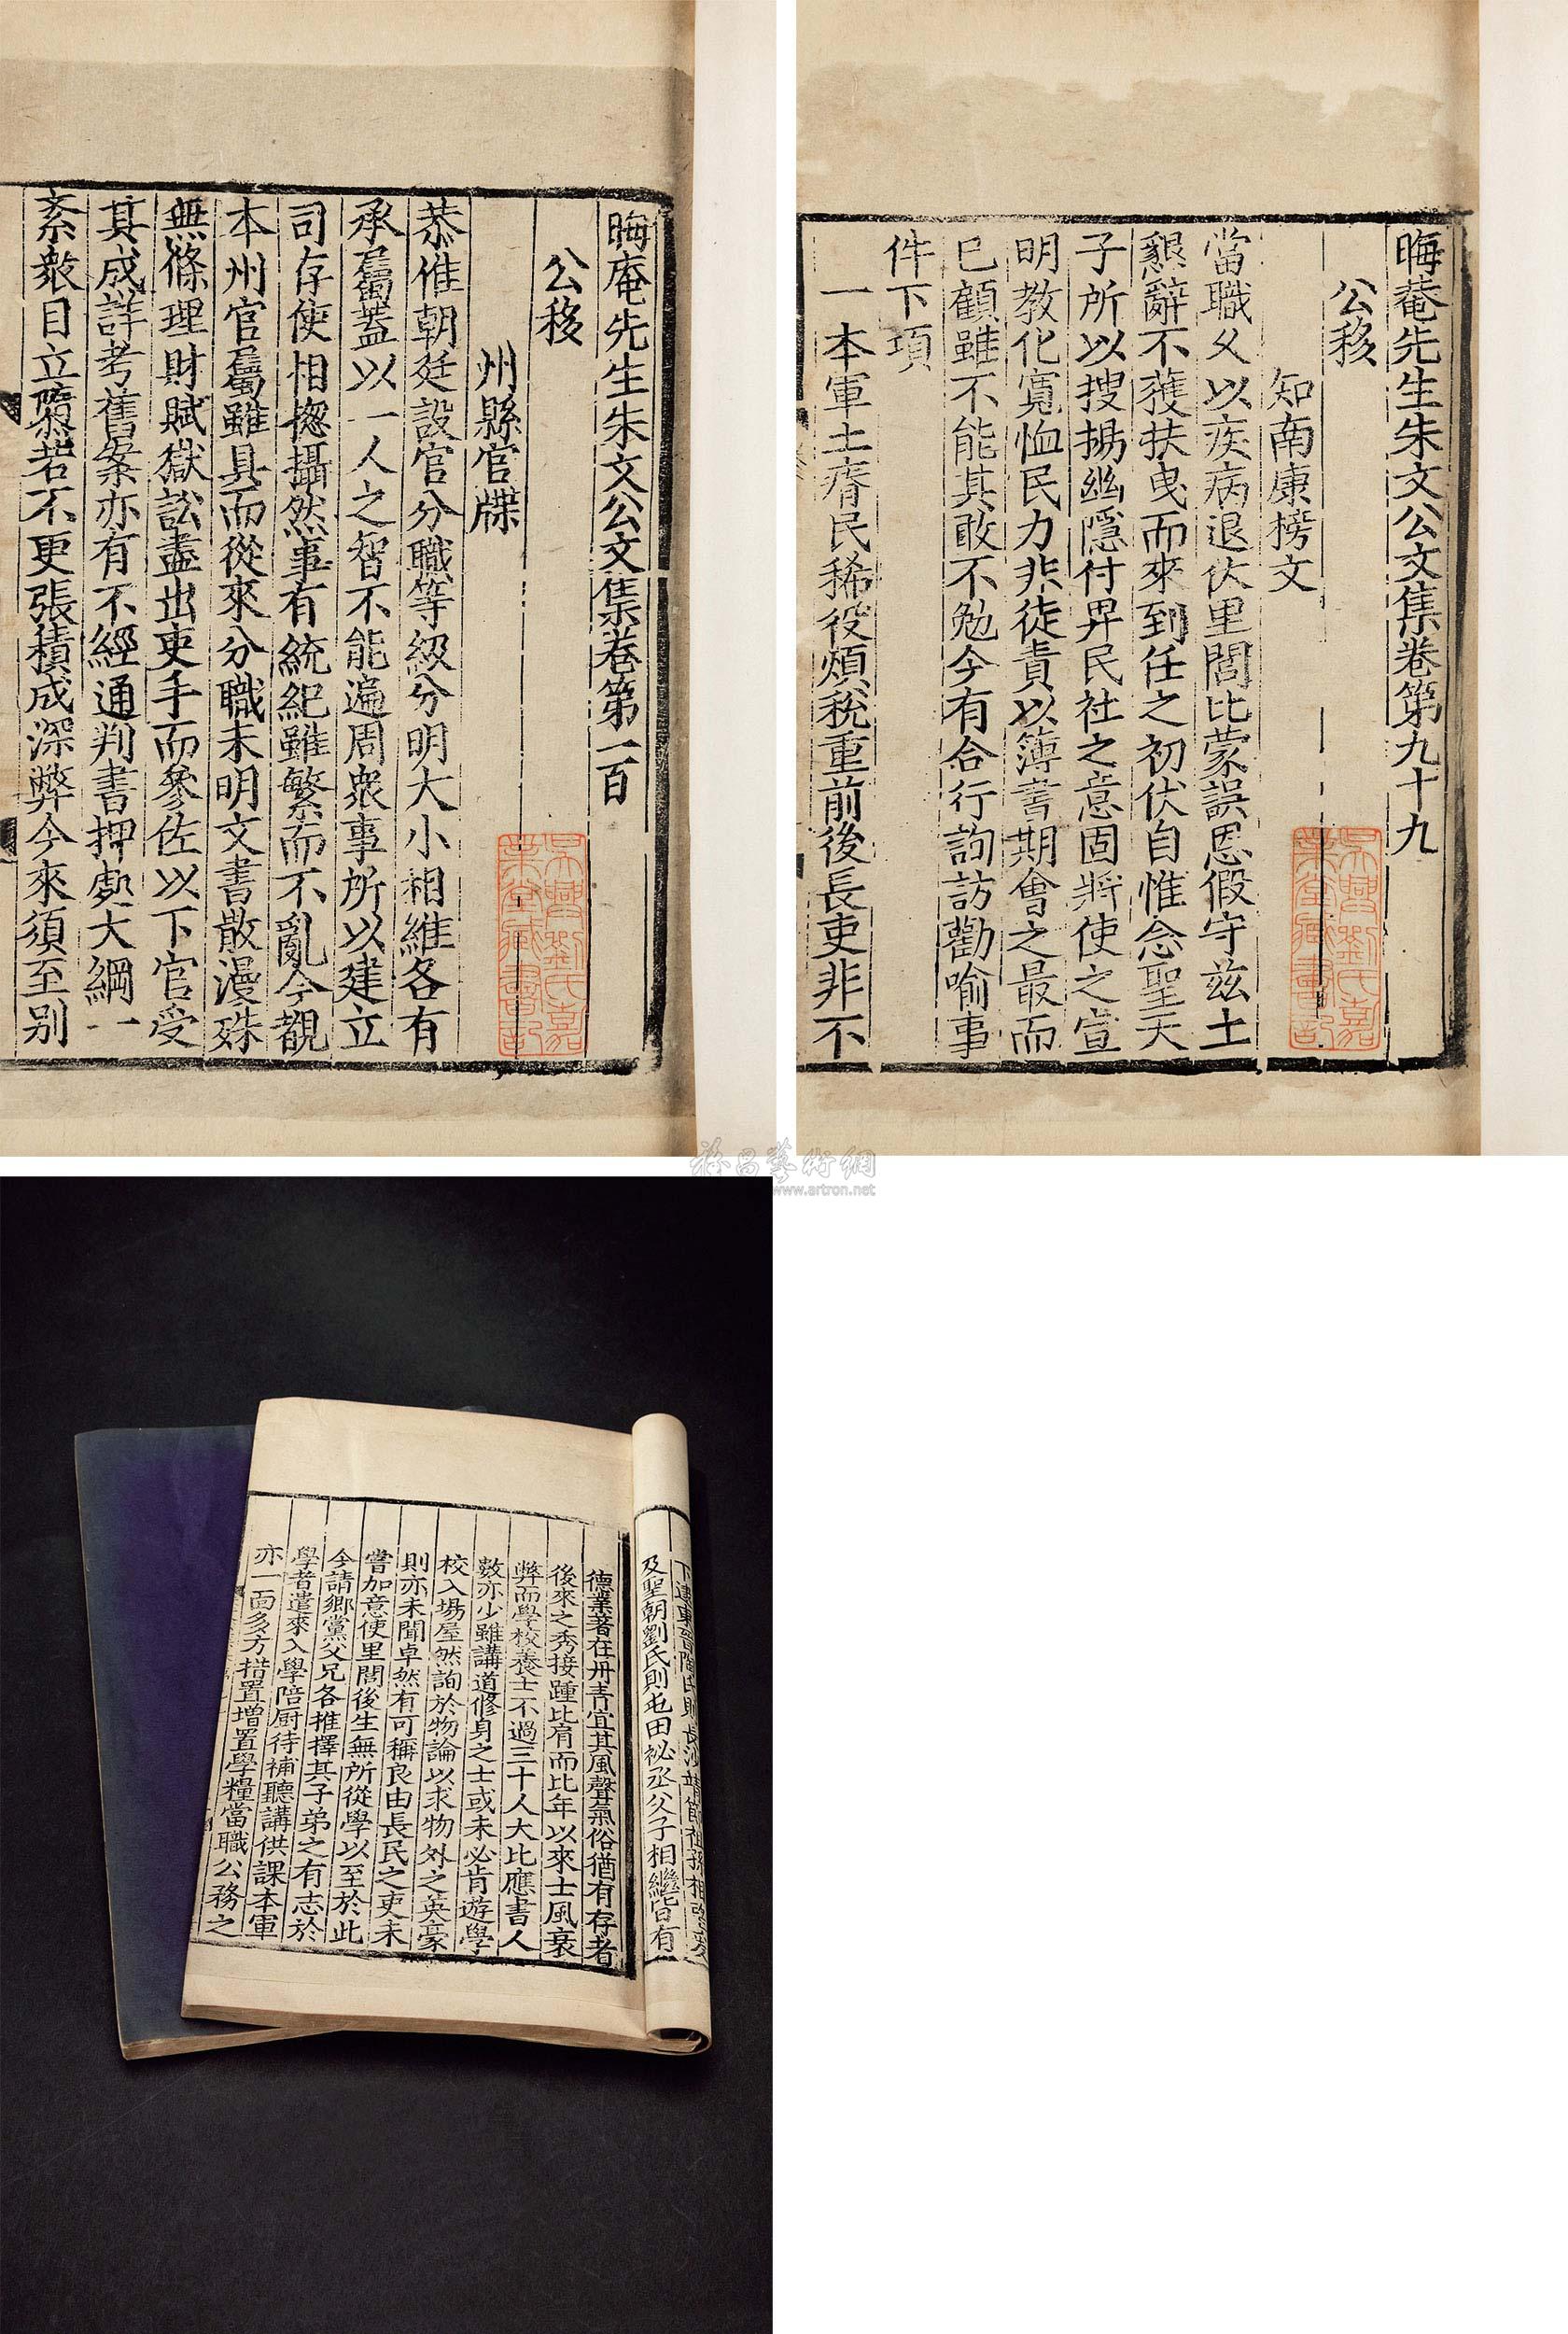 晦庵先生朱文公文集卷第一百
公移
州縣官牒
恭惟朝廷設官分職等級分明大小相維各有
承屬蓋以一人之智不能遍周衆事所以建立
司存使相揔攝然事有統紀雖繁而不亂今觀
本州官屬雖具而從來分職未明文書散漫殊
無條理財賦獄訟盡出吏手而參佐以下官受
其成詳考舊案亦有不經通判書押處大綱一
紊衆目立隳若不更張積成深弊今來須至別
吳興劉氏嘉
業堂藏書記
晦菴先生朱文公文集卷第九十九
公移
知南康榜文
當職久以疾病退伏里閭比蒙誤恩假守兹土
懇辭不獲扶曳而來到任之初伏自惟念聖天
子所以搜揚幽隱付畀民社之意固將使之宣
明教化寬恤民力非徒責以簿書期會之最而
已顧雖不能其敢不勉今有合行詢訪勸喻事
件下項
一本軍土瘠民稀役煩稅重前後長吏非不
吳興劉氏嘉
業堂藏書記
雅昌藝術網
www.artron.net
及聖朝劉氏則屯田祕丞父子相繼皆有
德業著在丹青宜其風聲氣俗猶有存者
後來之秀接踵比肩而比年以來士風衰
弊而學校養士不過三十人大比應書人
數亦少雖講道修身之士或未必肯遊學
校入場屋然詢於物論以求物外之英豪
則亦未聞卓然有可稱良由長民之吏未
嘗加意使里閭後生無所從學以至於此
今請鄉黨父兄各推擇其子弟之有志於
學者遣來入學陪厨待補聽講供課本軍
亦一面多方措置增置學糧當職公務之